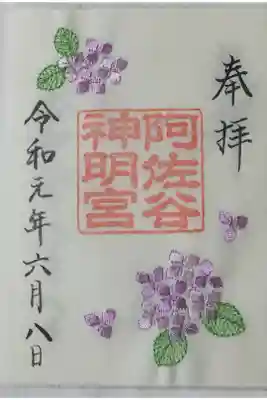 奉拝
阿佐谷
神明宮
令和元年六月八日